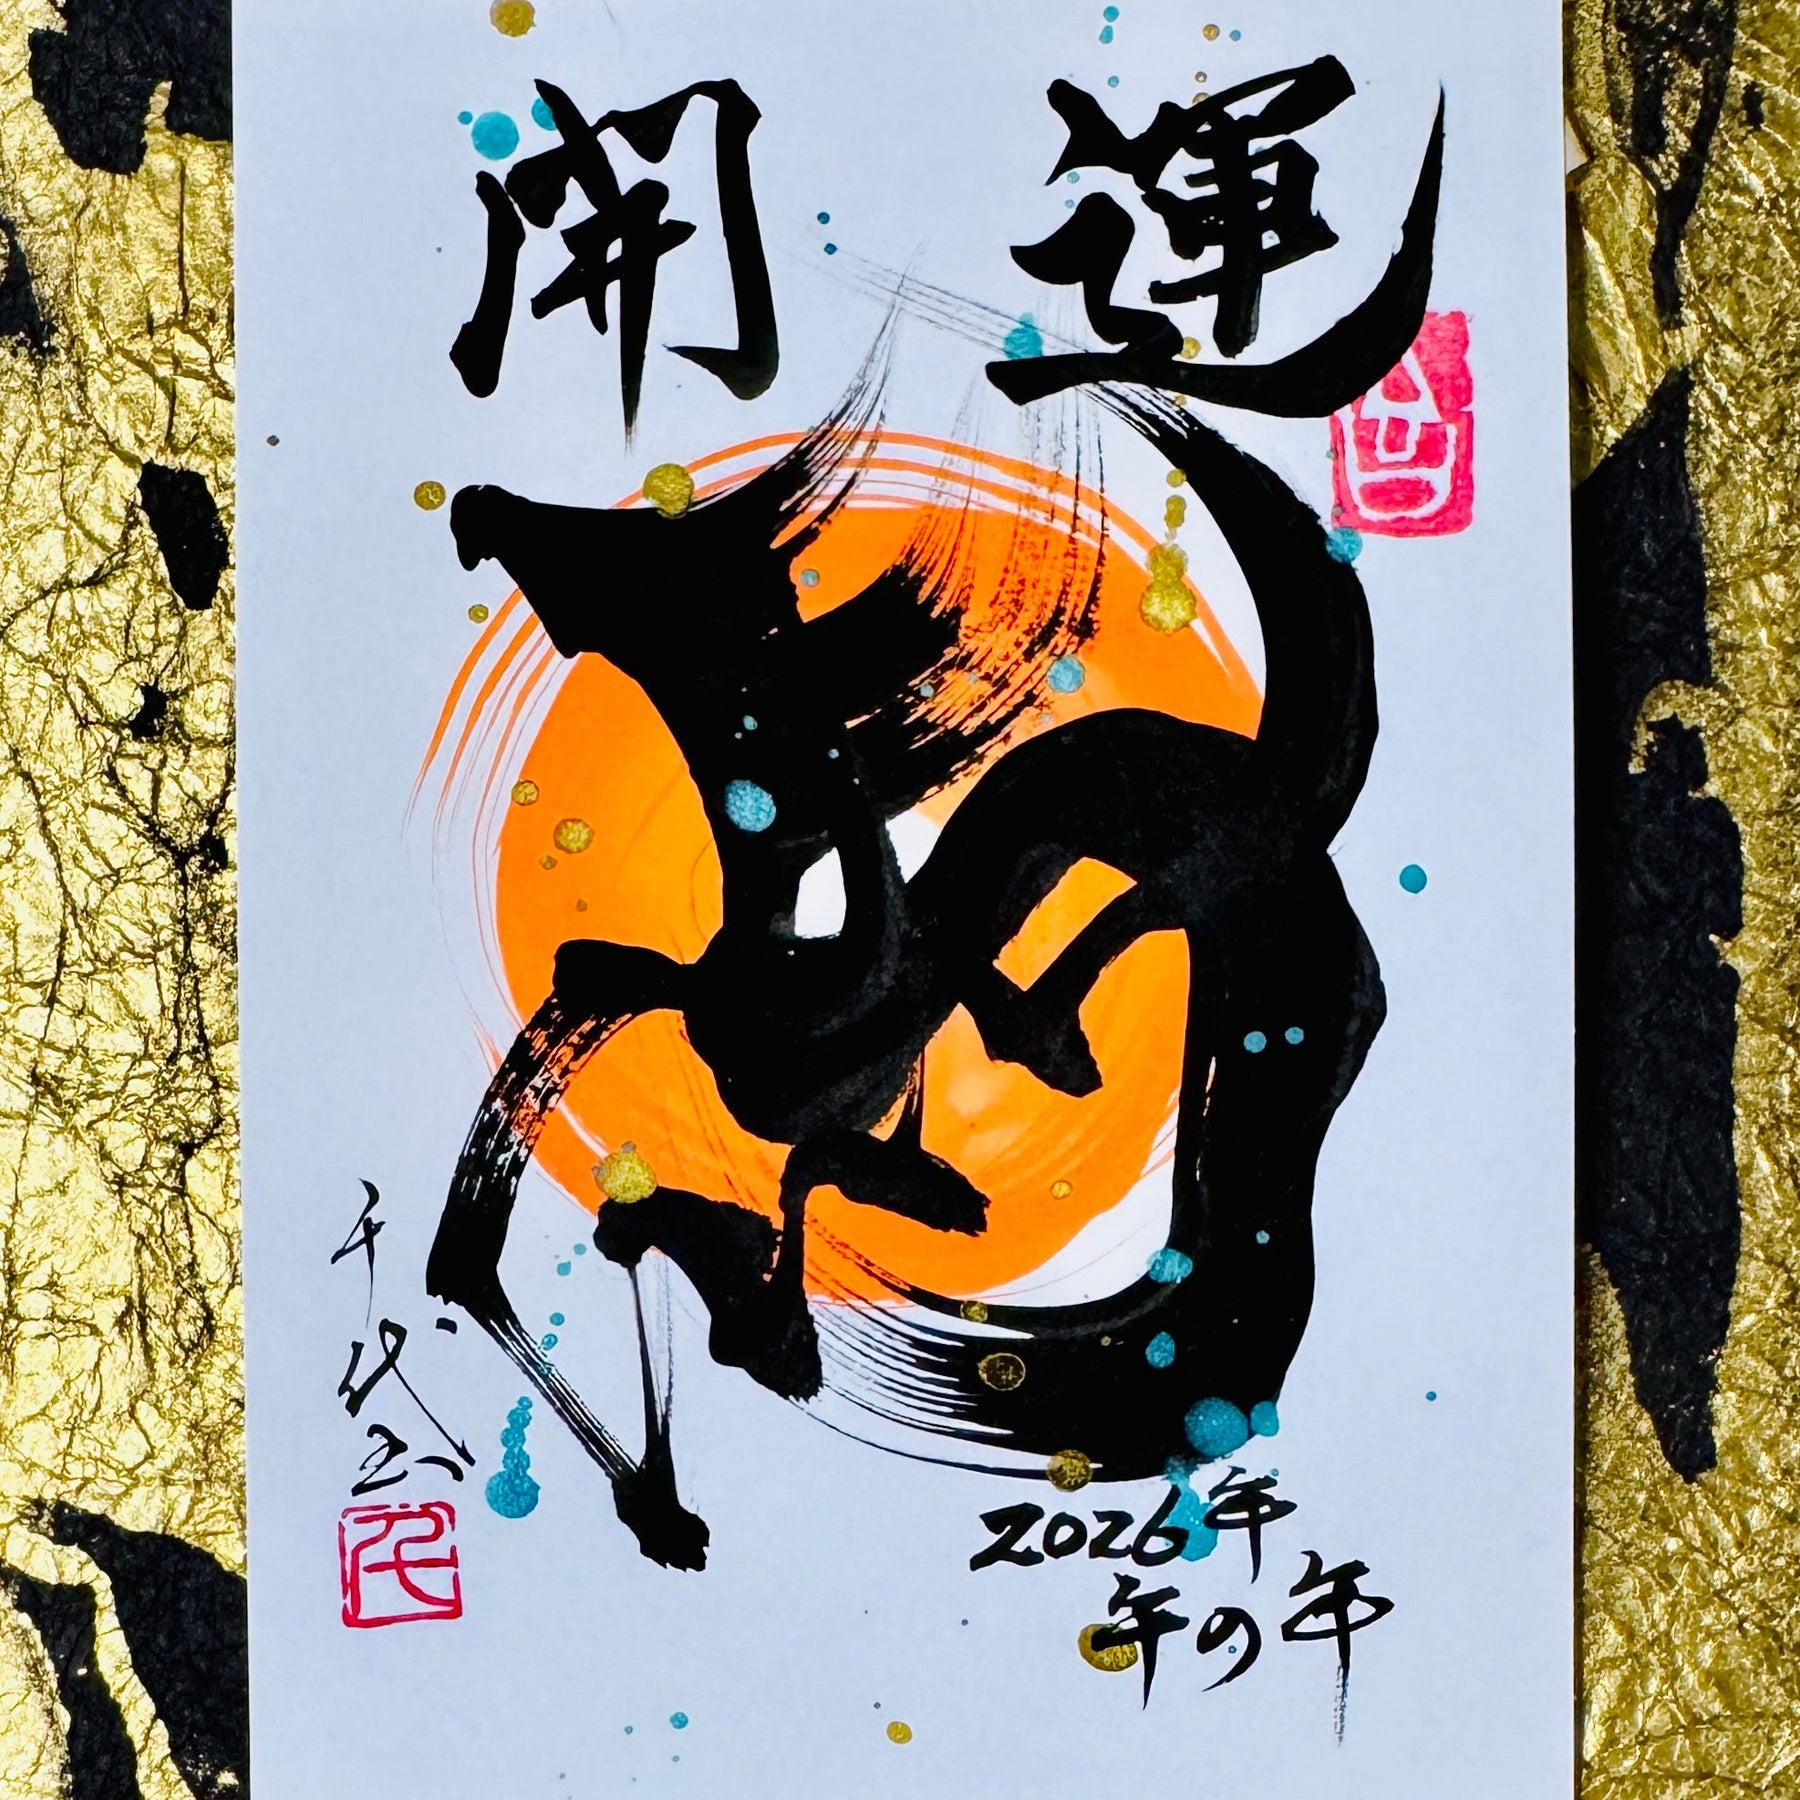 開運
2026年
午の年
千代玉